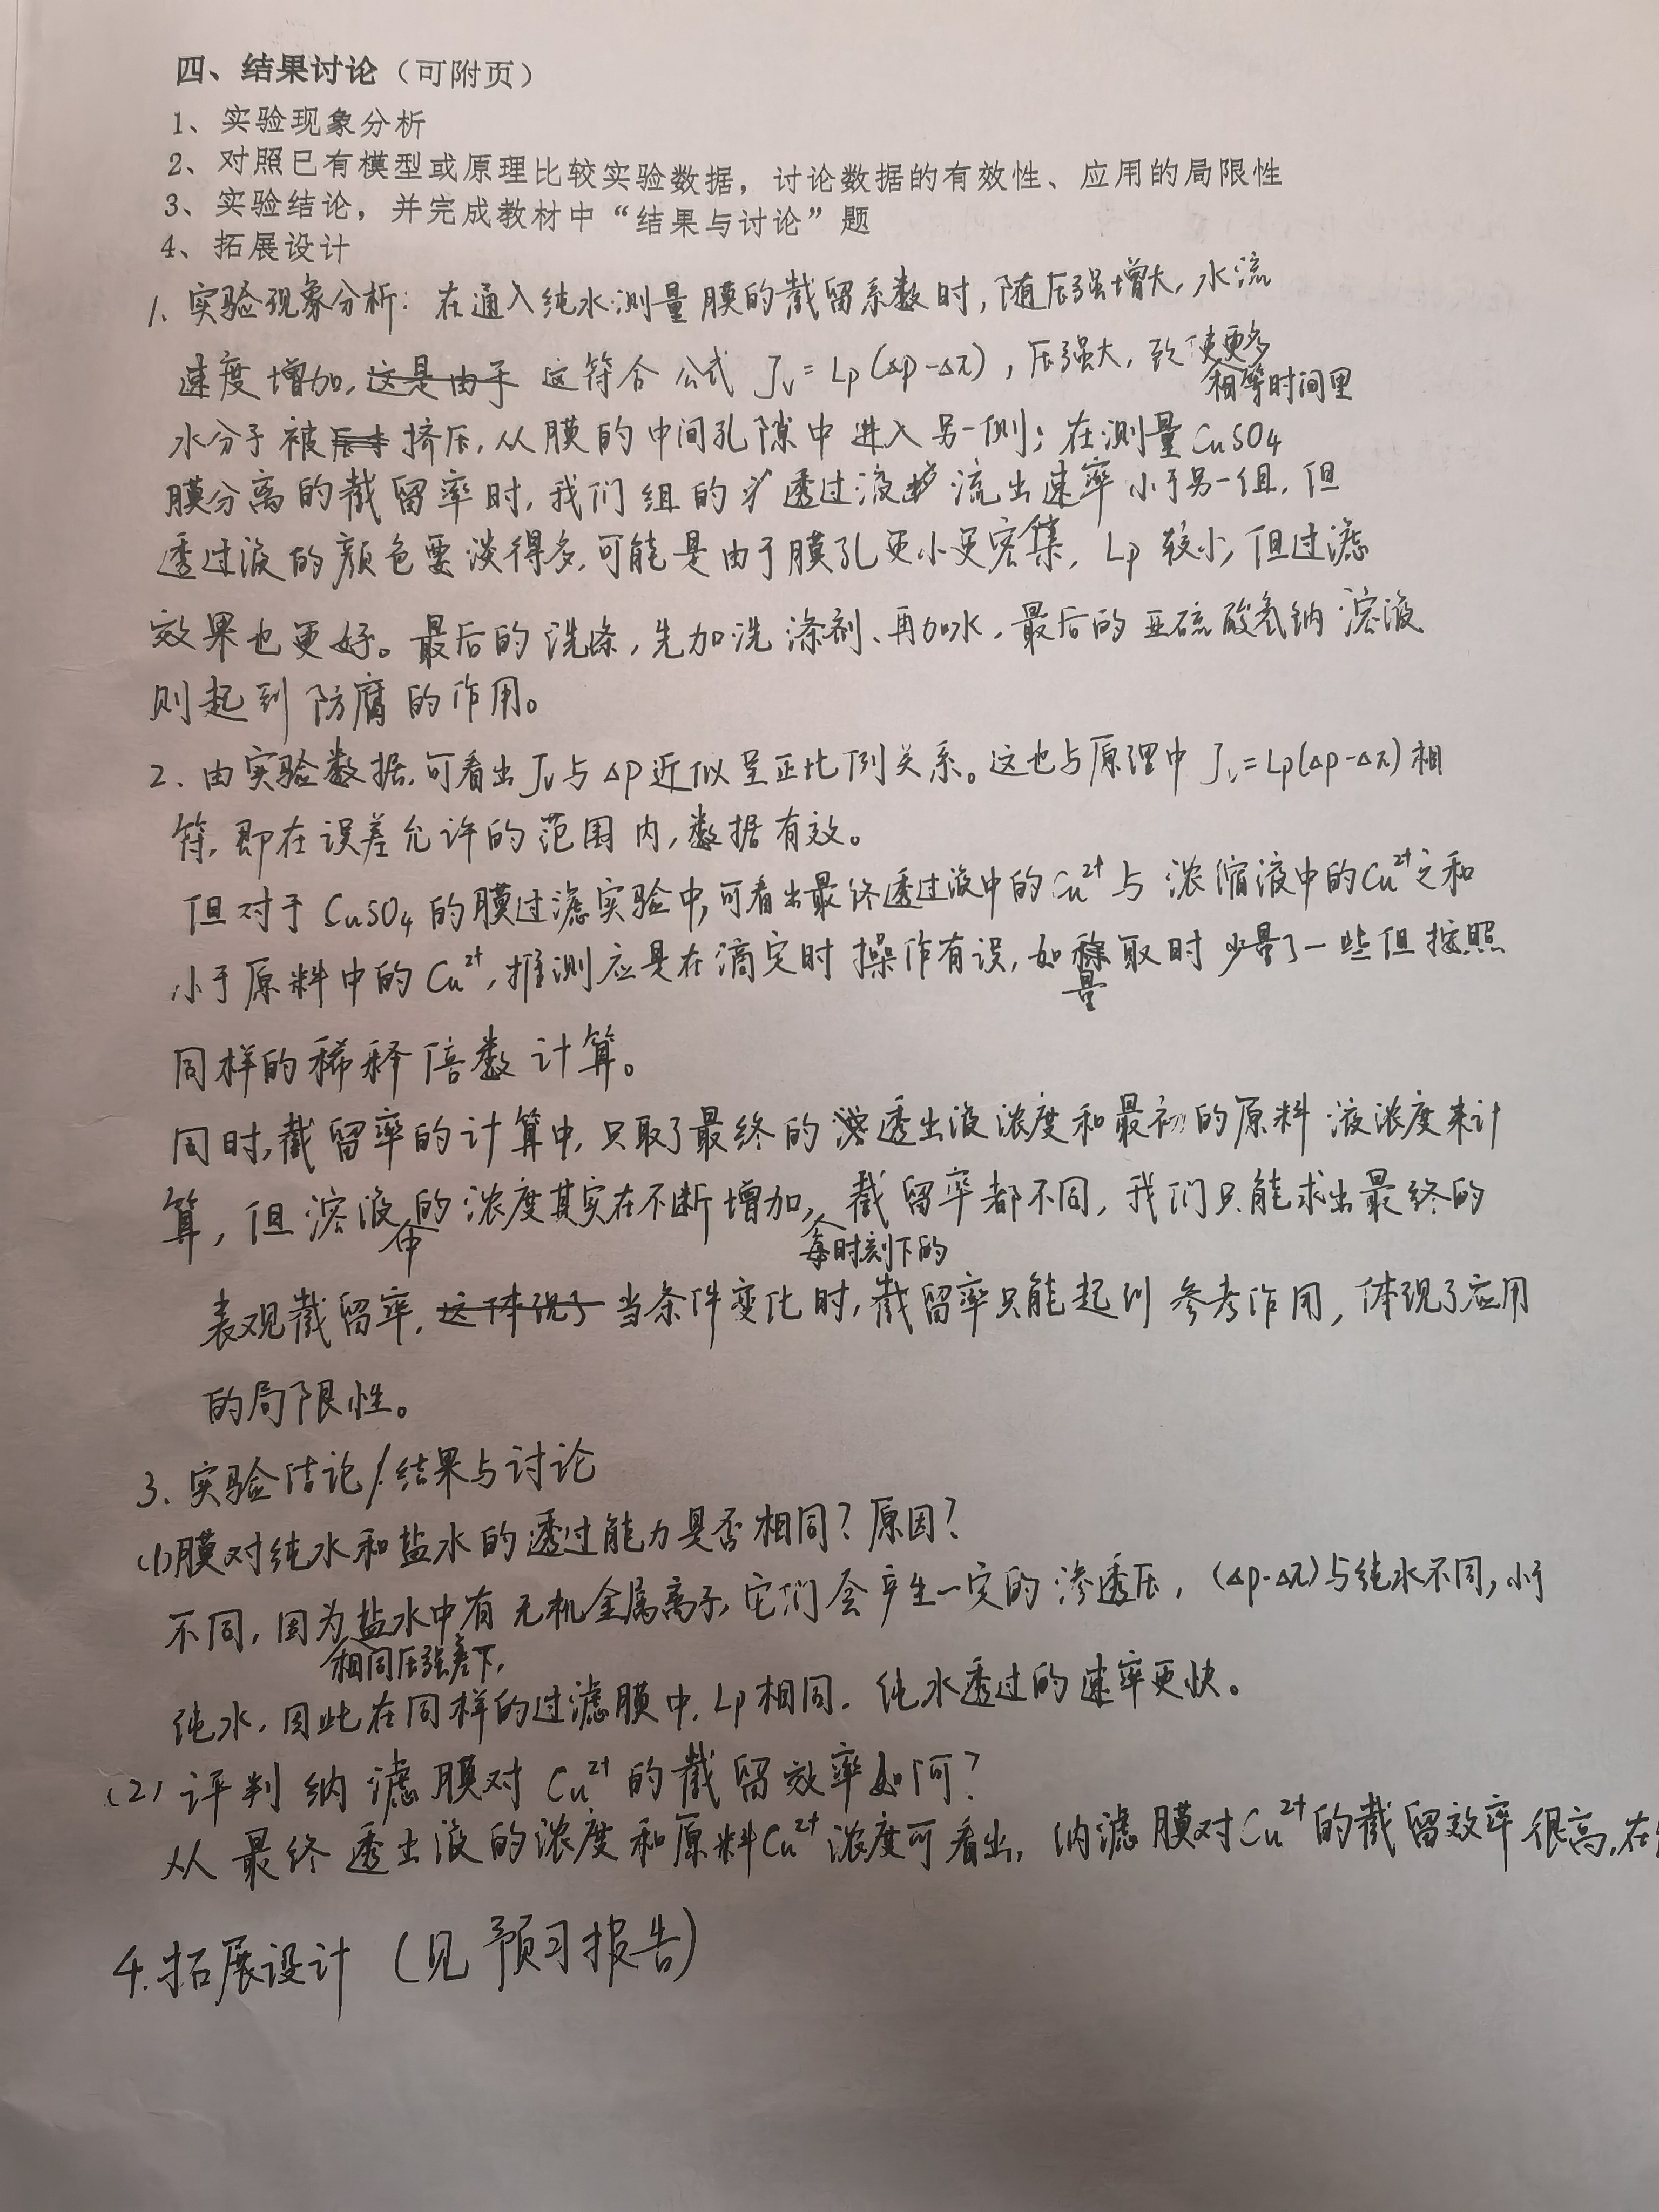 四、结果讨论（可附页）
1、实验现象分析
2、对照已有模型或原理比较实验数据，讨论数据的有效性、应用的局限性
3、实验结论，并完成教材中“结果与讨论”题
4、拓展设计
1、实验现象分析：在通入纯水测量膜的截留系数时，随压强增大，水流
速度增加，这是由于 这符合公式 Jv=Lp(Δp-Δπ)，压强大，致使更多
相等时间里
水分子被 挤压，从膜的中间孔隙中进入另一侧；在测量CuSO4
膜分离的截留率时，我们组的透过液 流出速率小于另一组，但
透过液的颜色要淡得多，可能是由于膜孔更小更密集，Lp较小，但过滤
效果也更好。最后的洗涤，先加洗涤剂、再加水，最后的亚硫酸氢钠溶液
则起到防腐的作用。
2、由实验数据，可看出Jv与Δp近似呈正比例关系。这也与原理中Jv=Lp(Δp-Δπ)相
符，即在误差允许的范围内，数据有效。
但对于CuSO4的膜过滤实验中，可看出最终透过液中的Cu²⁺与浓缩液中的Cu²⁺之和
小于原料中的Cu²⁺，推测应是在滴定时操作有误，如 取时少量了一些但按照
量
同样的稀释倍数计算。
同时，截留率的计算中，只取了最终的透出液浓度和最初的原料液浓度来计
算，但溶液的浓度其实在不断增加，截留率都不同，我们只能求出最终的
中 每时刻下的
表观截留率，这体现了 当条件变化时，截留率只能起到参考作用，体现了应用
的局限性。
3、实验结论/结果与讨论
(1)膜对纯水和盐水的透过能力是否相同？原因？
不同，因为盐水中有无机金属离子，它们会产生一定的渗透压，(Δp-Δπ)与纯水不同，小于
相同压强差下，
纯水，因此在同样的过滤膜中，Lp相同，纯水透过的速率更快。
(2)评判纳滤膜对Cu²⁺的截留效率如何？
从最终透出液的浓度和原料Cu²⁺浓度可看出，纳滤膜对Cu²⁺的截留效率很高，在
4.拓展设计（见预习报告）